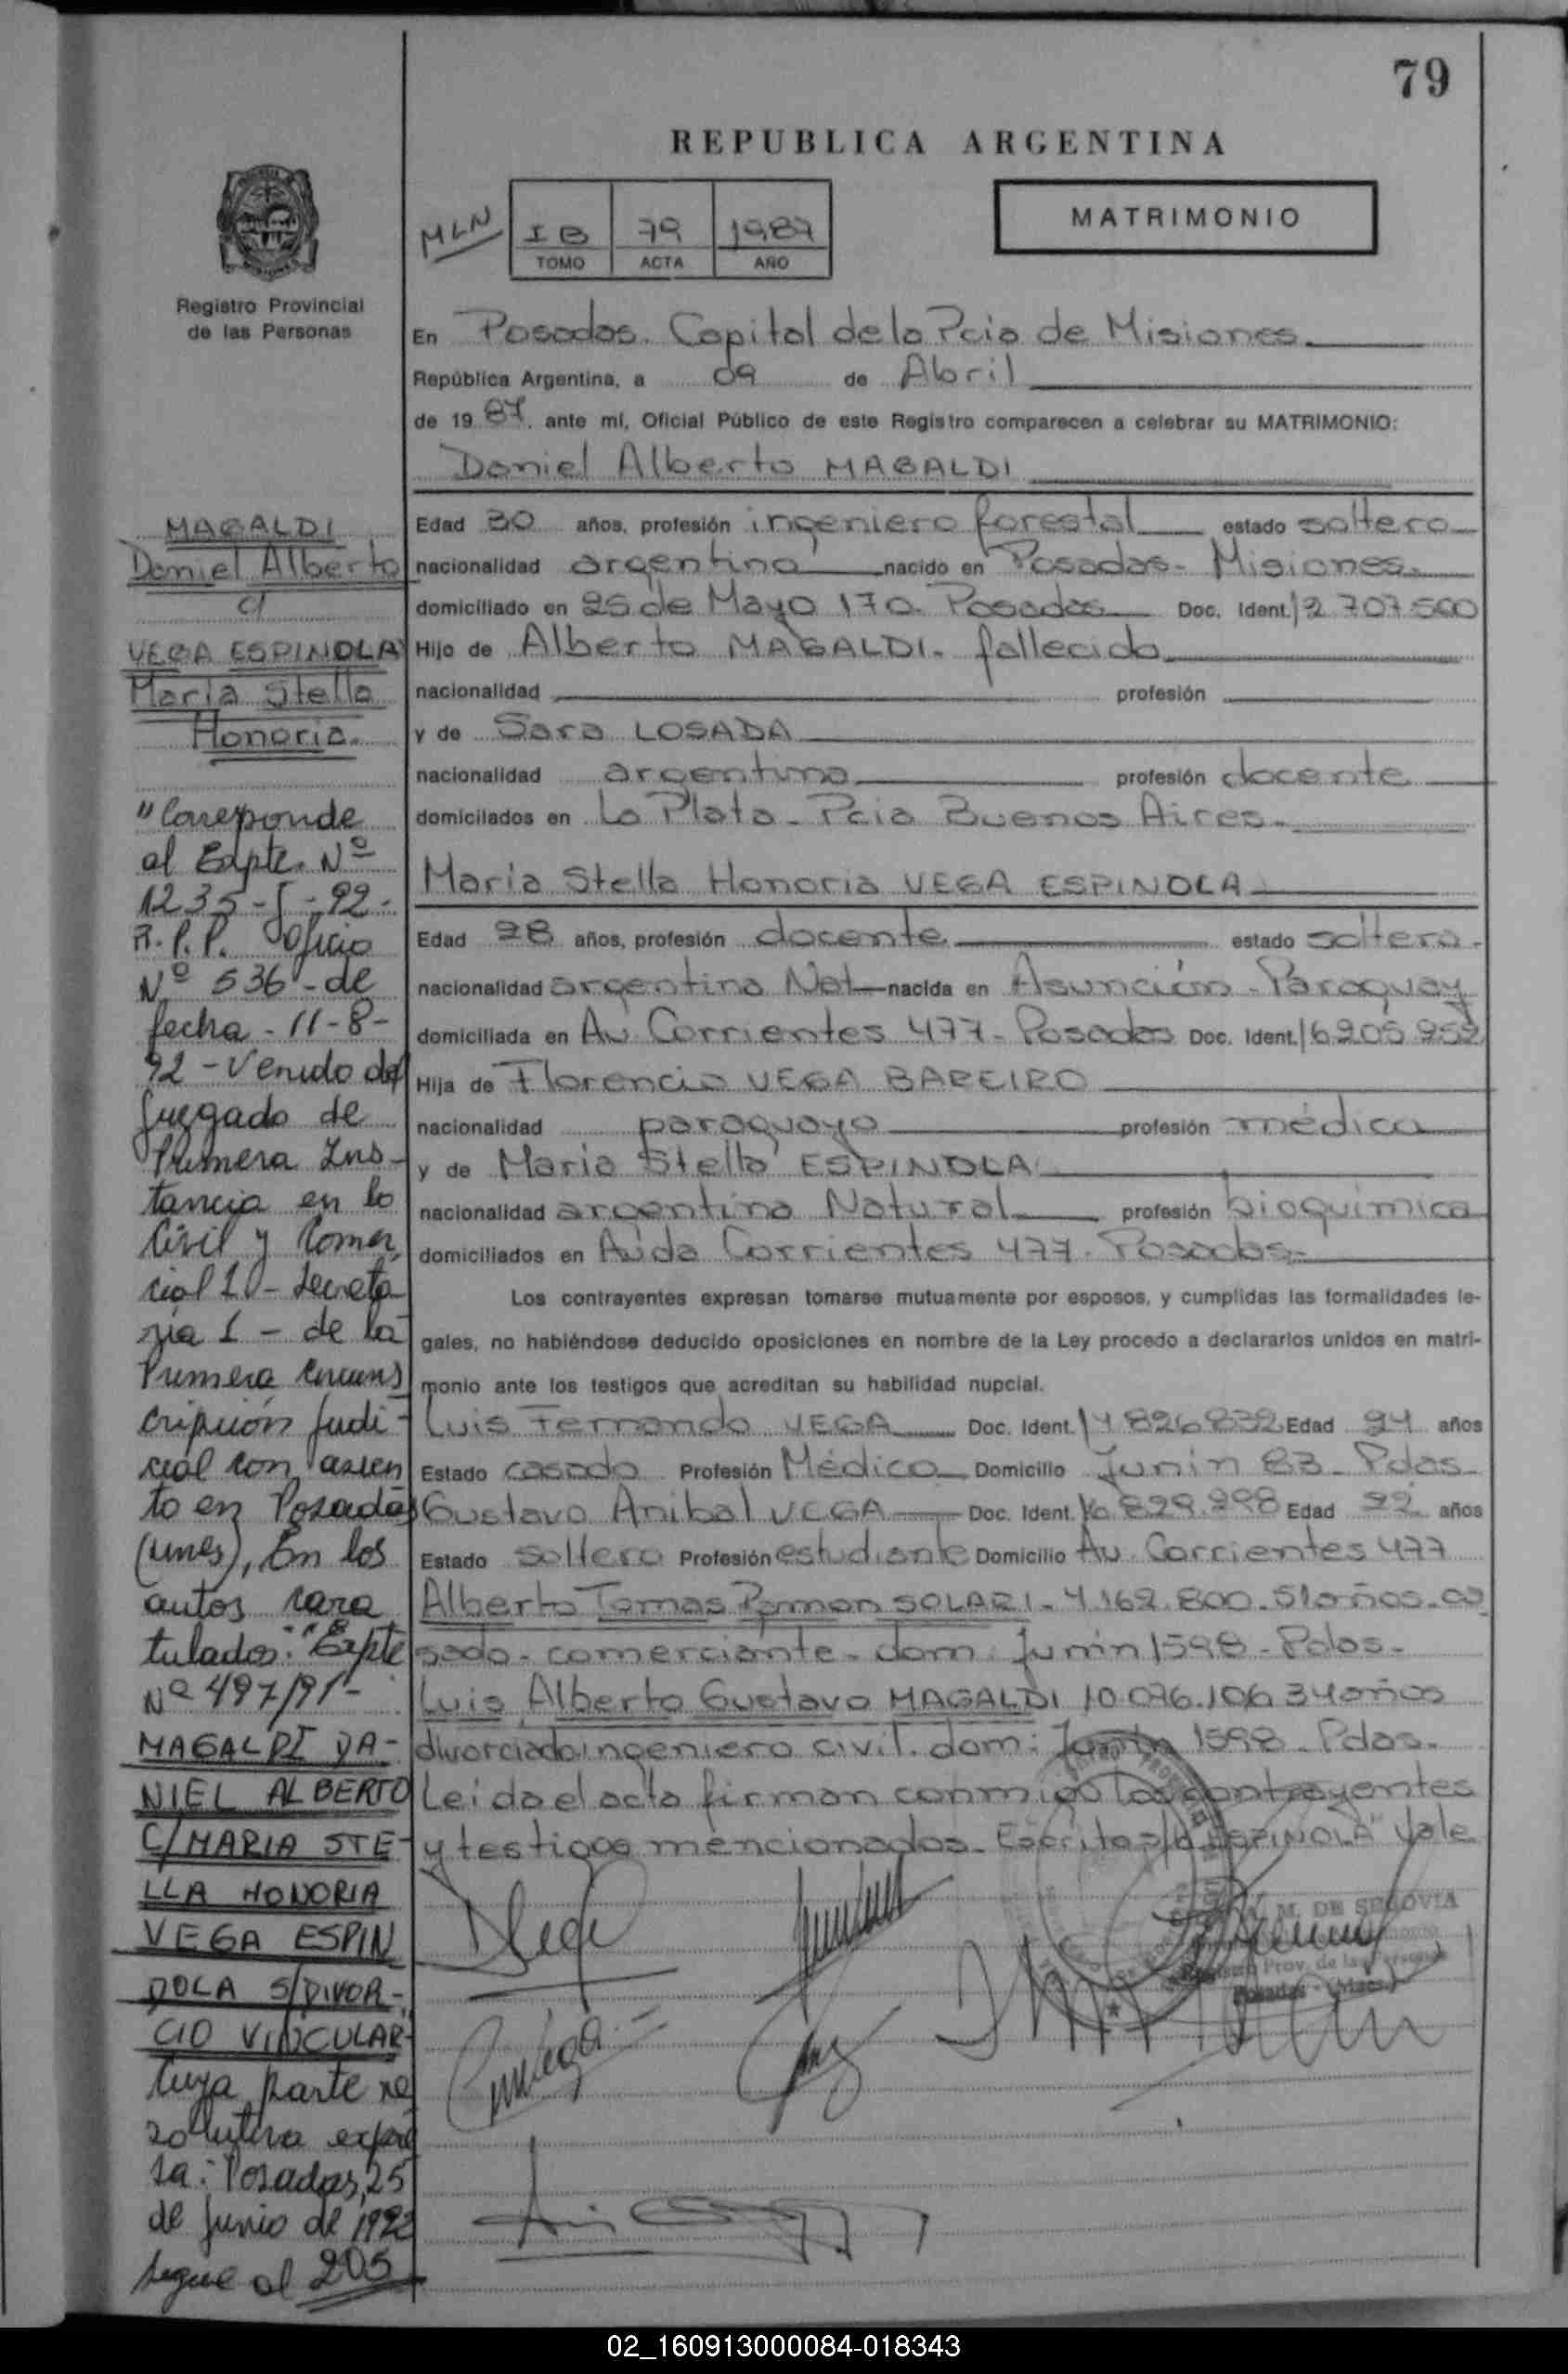 79
REPUBLICA ARGENTINA
MLN
I B
79
1987
TOMO
ACTA
AÑO
MATRIMONIO
Registro Provincial
de las Personas
En Posadas. Capital de la Pcia de Misiones
República Argentina, a 09 de Abril
de 1987. ante mí, Oficial Público de este Registro comparecen a celebrar su MATRIMONIO:
Daniel Alberto MAGALDI
Edad 30 años, profesión ingeniero forestal estado soltero
nacionalidad argentino nacido en Posadas- Misiones.
domiciliado en 25 de Mayo 170. Posadas Doc. Ident. 12 707 500
Hijo de Alberto MAGALDI. fallecido
nacionalidad profesión
y de Sara LOSADA
nacionalidad argentina profesión docente
domicilados en La Plata- Pcia Buenos Aires-
Maria Stella Honoria VEGA ESPINOLA
Edad 28 años, profesión docente estado soltera-
nacionalidad argentina Nat nacida en Asunción - Paraguay
domiciliada en Av Corrientes 477- Posadas Doc. Ident. 16 205 952
Hija de Florencio VEGA BAREIRO
nacionalidad paraguayo profesión médico
y de Maria Stella ESPINOLA
nacionalidad argentina Natural profesión bioquimica
domiciliados en Avda Corrientes 477. Posadas-
Los contrayentes expresan tomarse mutuamente por esposos, y cumplidas las formalidades le-
gales, no habiéndose deducido oposiciones en nombre de la Ley procedo a declararlos unidos en matri-
monio ante los testigos que acreditan su habilidad nupcial.
Luis Fernando VEGA Doc. Ident. 14 826 832 Edad 24 años
Estado casado Profesión Médico Domicilio Junín 83- Pdas-
Gustavo Anibal VEGA Doc. Ident. 829.298 Edad 22 años
Estado soltero Profesión estudiante Domicilio Av. Corrientes 477
Alberto Tomas Ramon SOLARI- 4.162.800. 51 años- ca
sado- comerciante- dom: Junín 1598- Pdas-
Luis Alberto Gustavo MAGALDI 10.096.106 34 años
divorciado ingeniero civil. dom: Junín 1598- Pdas-
Leida el acta firman conmigo los contrayentes
y testigos mencionados- Escrito s/b "ESPINOLA" Vale
M. DE SEGOVIA
Prov. de las Personas
Posadas - (Mnes.)
MAGALDI
Daniel Alberto
c/
VEGA ESPINOLA
Maria Stella
Honoria.
"Corresponde
al Expte. Nº
1235-J-92-
R.P.P. Oficio
Nº 536-de
fecha-11-8-
92-Venido del
Juzgado de
Primera Ins-
tancia en lo
Civil y Comer
cial 1 - Secreta
ria 1 - de la
Primera Circuns
cripción Judi-
cial con asien
to en Posadas
(Mnes), En los
autos cara
tulados: "Expte
Nº 497/91-
MAGALDI DA-
NIEL ALBERTO
C/MARIA STE-
LLA HONORIA
VEGA ESPIN
DOLA S/DIVOR-
CIO VINCULAR-
Cuya parte re
solutiva expre
sa: Posadas, 25
de Junio de 1992
Sigue al 205
02_160913000084-018343